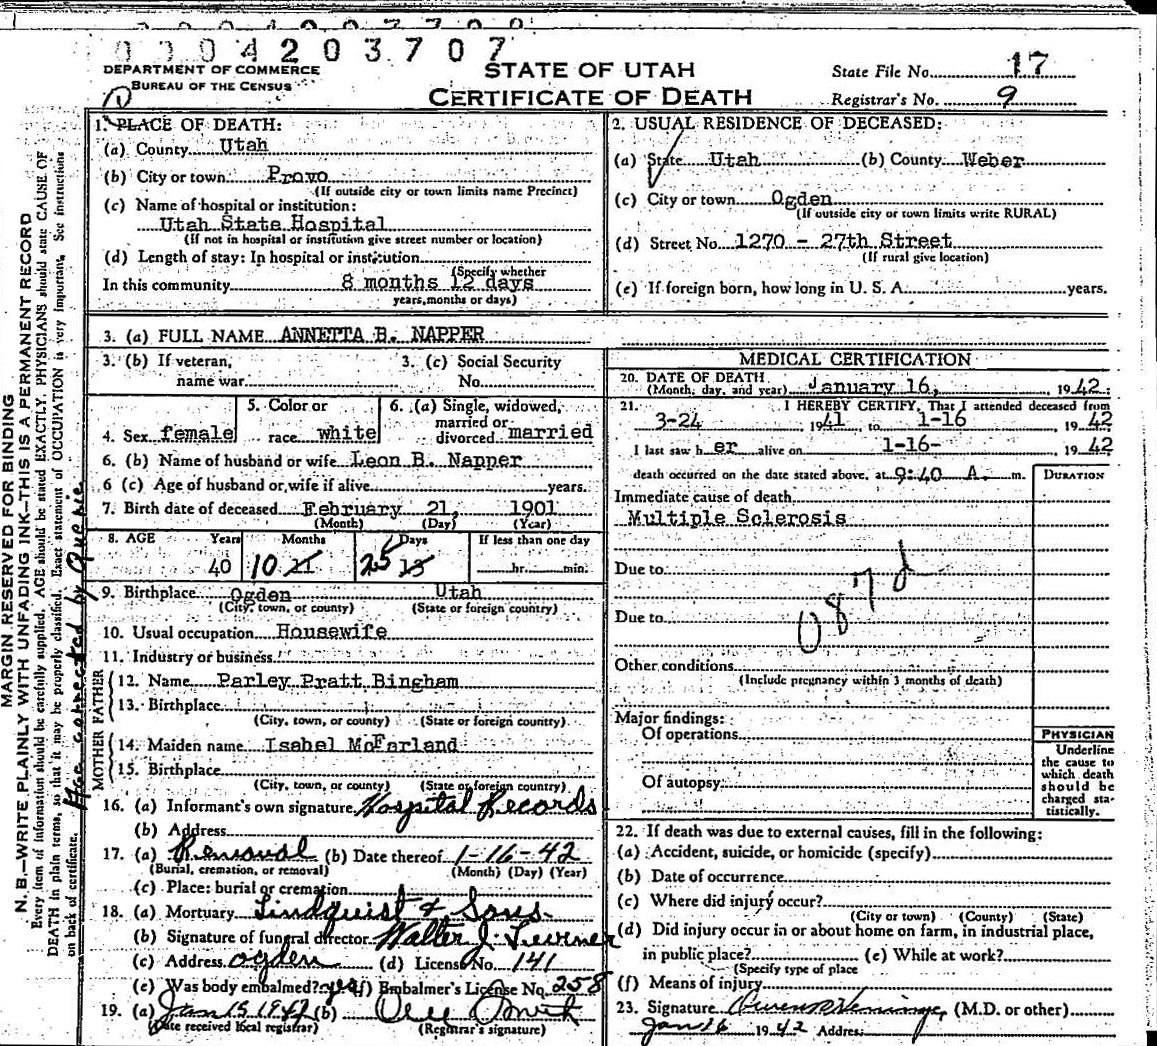 0004203707
DEPARTMENT OF COMMERCE
BUREAU OF THE CENSUS
STATE OF UTAH
CERTIFICATE OF DEATH
State File No. 17
Registrar's No. 9
MARGIN RESERVED FOR BINDING
N. B.—WRITE PLAINLY WITH UNFADING INK—THIS IS A PERMANENT RECORD
Every item of information should be carefully supplied. AGE should be stated EXACTLY. PHYSICIANS should state CAUSE OF
DEATH in plain terms, so that it may be properly classified. Exact statement of OCCUPATION is very important. See instructions
on back of certificate.
Age corrected by Querie
1. PLACE OF DEATH:
(a) County Utah
(b) City or town Provo
(If outside city or town limits name Precinct)
(c) Name of hospital or institution:
Utah State Hospital
(If not in hospital or institution give street number or location)
(d) Length of stay: In hospital or institution
(Specify whether
In this community 8 months 12 days
years, months or days)
2. USUAL RESIDENCE OF DECEASED:
(a) State Utah (b) County Weber
(c) City or town Ogden
(If outside city or town limits write RURAL)
(d) Street No. 1270 - 27th Street
(If rural give location)
(e) If foreign born, how long in U. S. A. years.
3. (a) FULL NAME ANNETTA B. NAPPER
3. (b) If veteran,
name war
3. (c) Social Security
No.
4. Sex female
5. Color or
race white
6. (a) Single, widowed,
married or
divorced married
6. (b) Name of husband or wife Leon B. Napper
6 (c) Age of husband or wife if alive years.
7. Birth date of deceased February 21, 1901
(Month) (Day) (Year)
8. AGE Years Months Days If less than one day
40 10 25 hr. min.
9. Birthplace Ogden Utah
(City, town, or county) (State or foreign country)
10. Usual occupation Housewife
11. Industry or business
FATHER
12. Name Parley Pratt Bingham
13. Birthplace
(City, town, or county) (State or foreign country)
MOTHER
14. Maiden name Isabel McFarland
15. Birthplace
(City, town, or county) (State or foreign country)
16. (a) Informant's own signature Hospital Records
(b) Address
17. (a) Removal (b) Date thereof 1-16-42
(Burial, cremation, or removal) (Month) (Day) (Year)
(c) Place: burial or cremation
18. (a) Mortuary Lindquist & Sons
(b) Signature of funeral director Walter J.
(c) Address Ogden (d) License No. 141
(e) Was body embalmed? yes (f) Embalmer's License No. 258
19. (a) Jan 15 1942 (b) Smith
(Date received local registrar) (Registrar's signature)
MEDICAL CERTIFICATION
20. DATE OF DEATH
(Month, day, and year) January 16, 1942.
21. I HEREBY CERTIFY, That I attended deceased from
3-24 1941 to 1-16 , 1942
I last saw her alive on 1-16- , 1942
death occurred on the date stated above, at 9:40 A. m.
DURATION
Immediate cause of death
Multiple Sclerosis
Due to
087d
Due to
Other conditions
(Include pregnancy within 3 months of death)
Major findings:
Of operations
Of autopsy
PHYSICIAN
Underline
the cause to
which death
should be
charged sta-
tistically.
22. If death was due to external causes, fill in the following:
(a) Accident, suicide, or homicide (specify)
(b) Date of occurrence
(c) Where did injury occur?
(City or town) (County) (State)
(d) Did injury occur in or about home on farm, in industrial place,
in public place? (e) While at work?
(Specify type of place
(f) Means of injury
23. Signature (M.D. or other)
Jan 16 1942 Address